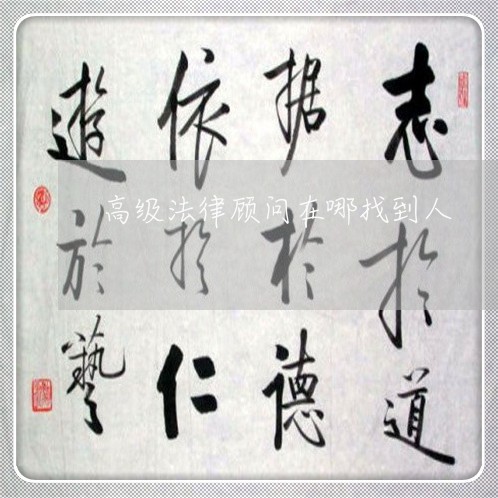 志於道
据於德
依於仁
遊於藝
高级法律顾问在哪找到人